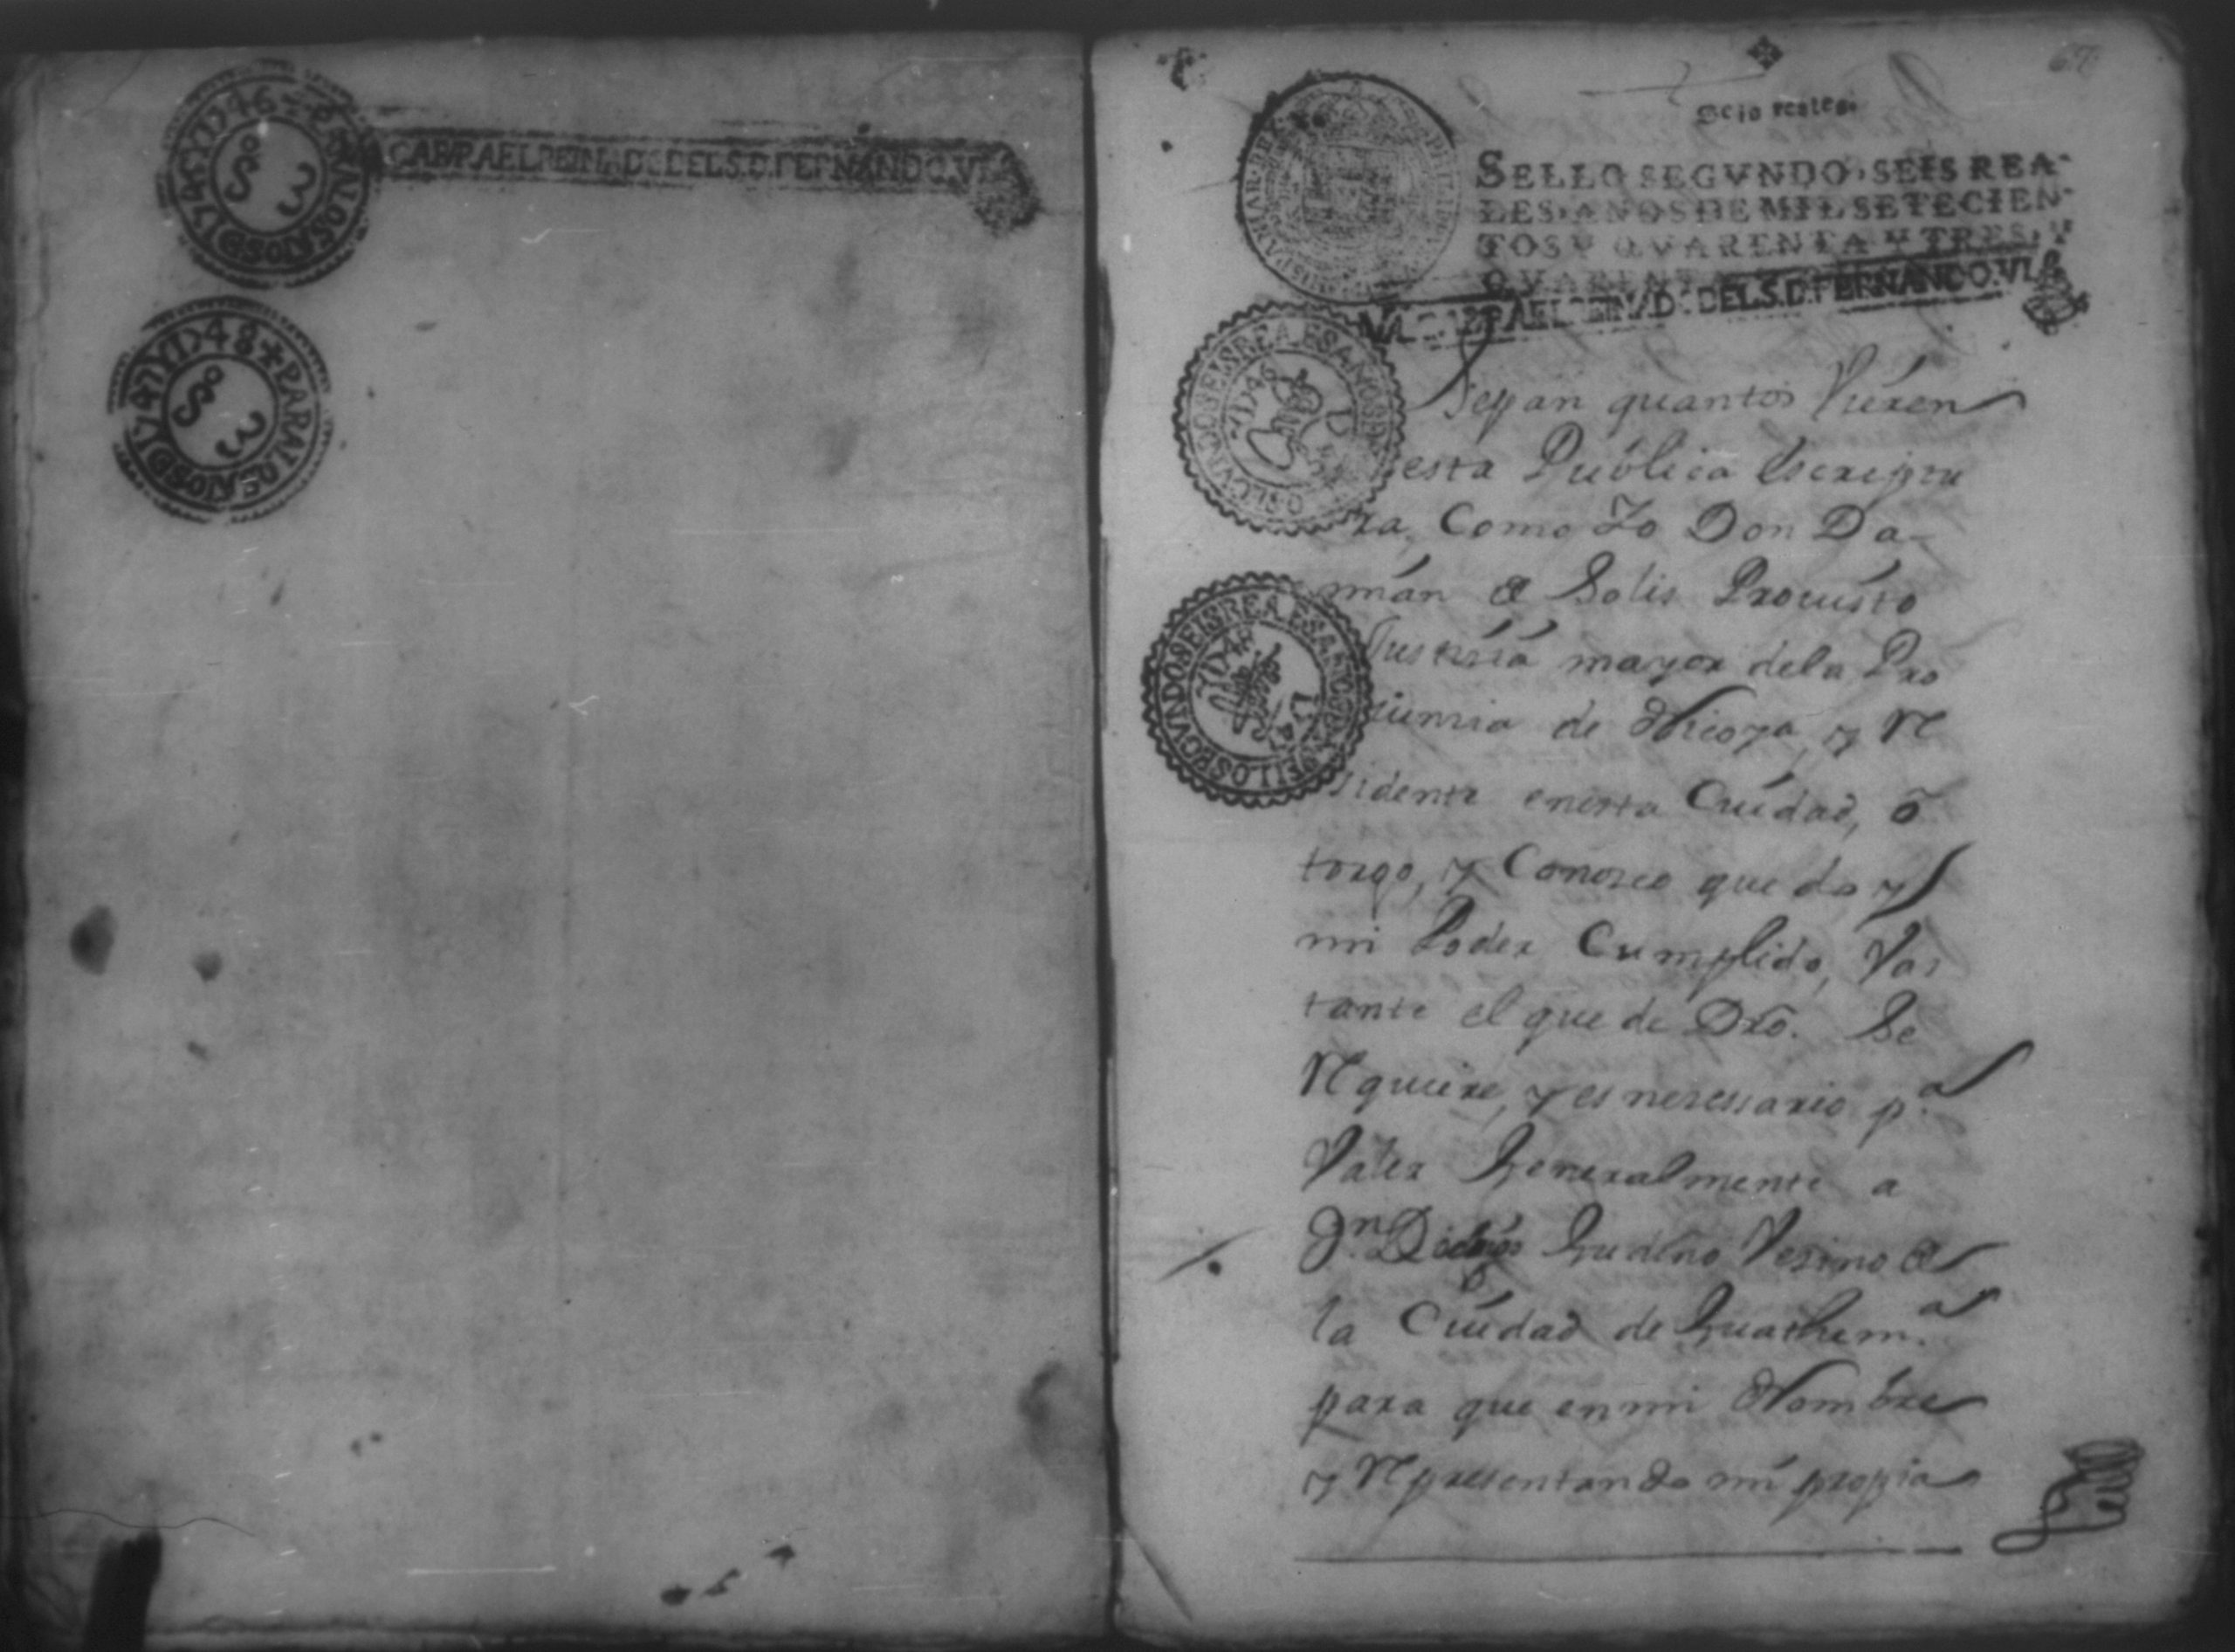 VALGA PARA EL REINADO DEL S. D. FERNANDO. VI
PARA LOS AÑOS D 1745 YD 46
S 3º
PARA LOS AÑOS D 1747 YD 48
S 3º
67
Seis reales.
SELLO SEGVNDO, SEIS REA-
LES, AÑOS DE MIL SETECIEN-
TOS Y QVARENTA Y TRES, Y
QVARENTA
VALGA PARA EL REINADO DEL S. D. FERNANDO. VI
SELLO SEGVNDO SEIS REALES AÑOS D
YD 46
SELLO SEGVNDO SEIS REALES AÑOS D
YD 48
Sepan quantos Vieren
esta Pública Escriptu
ra, Como Yo Don Da-
mián de Solis
Justicia mayor dela Pro
vincia de Nicoya, y Re
sidente enesta Ciúdad, ô
torgo, y Conozco que do y
mi Poder Cumplido, Vas
tante el que de Dro. Se
Requiere, y es nesessario p.a
Valer Generalmente a
Dn. Gudiño Vezino de
la Ciúdad de Guathem.a
para que en mi Nombre
y Representando mi propia